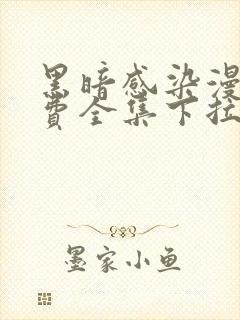 黑暗感染漫
费全集下拉
墨家小鱼